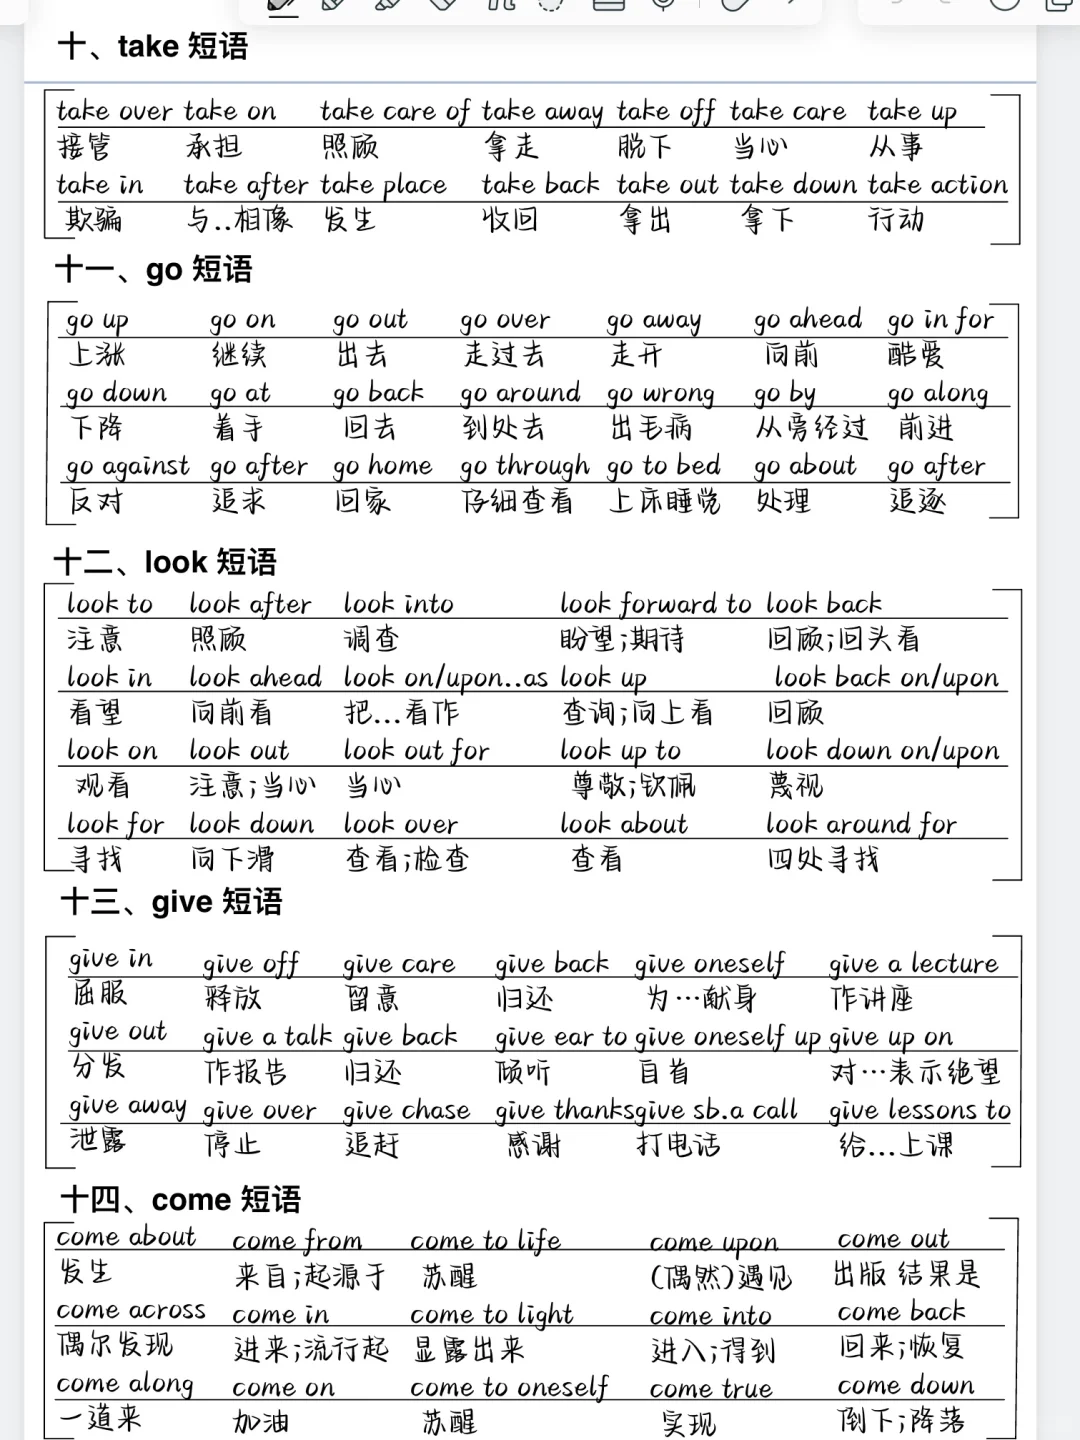 十、take 短语
take over take on take care of take away take off take care take up
接管 承担 照顾 拿走 脱下 当心 从事
take in take after take place take back take out take down take action
欺骗 与..相像 发生 收回 拿出 拿下 行动
十一、go 短语
go up go on go out go over go away go ahead go in for
上涨 继续 出去 走过去 走开 向前 酷爱
go down go at go back go around go wrong go by go along
下降 着手 回去 到处去 出毛病 从旁经过 前进
go against go after go home go through go to bed go about go after
反对 追求 回家 仔细查看 上床睡觉 处理 追逐
十二、look 短语
look to look after look into look forward to look back
注意 照顾 调查 盼望;期待 回顾;回头看
look in look ahead look on/upon..as look up look back on/upon
看望 向前看 把...看作 查询;向上看 回顾
look on look out look out for look up to look down on/upon
观看 注意;当心 当心 尊敬;钦佩 蔑视
look for look down look over look about look around for
寻找 向下滑 查看;检查 查看 四处寻找
十三、give 短语
give in give off give care give back give oneself give a lecture
屈服 释放 留意 归还 为…献身 作讲座
give out give a talk give back give ear to give oneself up give up on
分发 作报告 归还 倾听 自首 对…表示绝望
give away give over give chase give thanks give sb.a call give lessons to
泄露 停止 追赶 感谢 打电话 给...上课
十四、come 短语
come about come from come to life come upon come out
发生 来自;起源于 苏醒 (偶然)遇见 出版 结果是
come across come in come to light come into come back
偶尔发现 进来;流行起 显露出来 进入;得到 回来;恢复
come along come on come to oneself come true come down
一道来 加油 苏醒 实现 倒下;降落